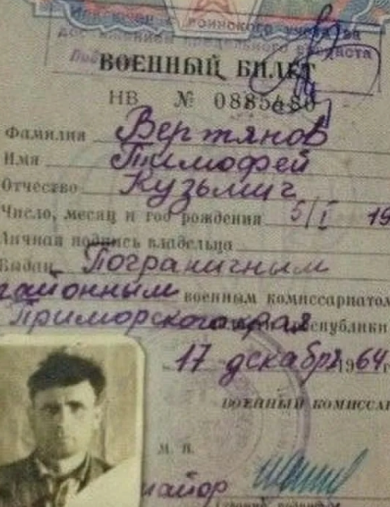 воинского учета
предельного возраста
ВОЕННЫЙ БИЛЕТ
НВ № 0885480
Фамилия Вертянов
Имя Тимофей
Отчество Кузьмич
Число, месяц и год рождения 5/I 19
Личная подпись владельца
Выдан Пограничным
районным военным комиссариатом
Приморского края республики
17 декабря 1964 г
ВОЕННЫЙ КОМИССАР
М. П.
майор